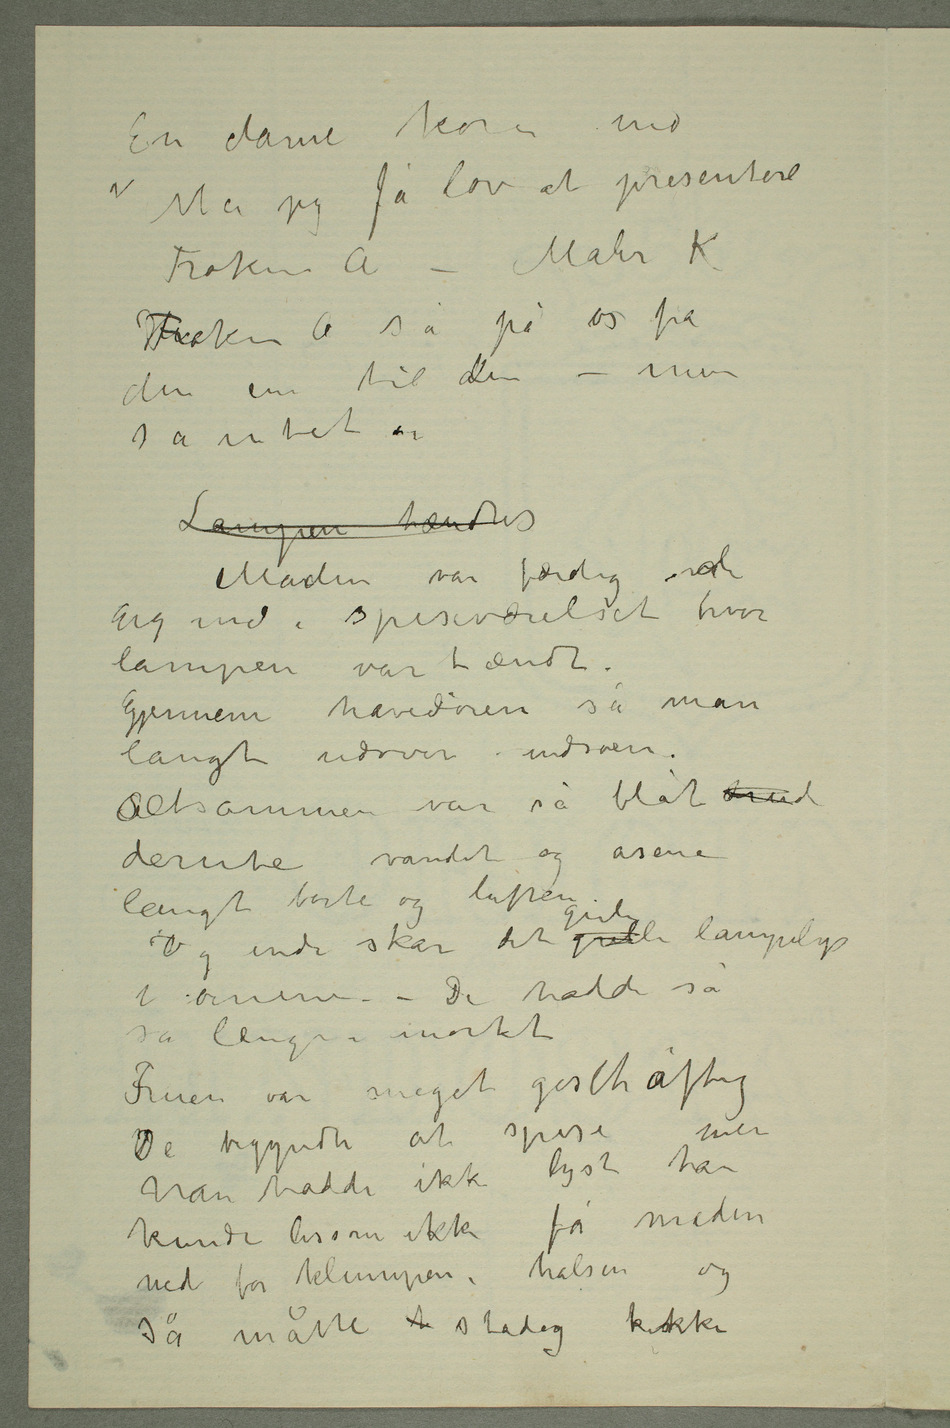 En dame kom ind
Må jeg få lov at presentere
Frøken A – Maler K
Frøken A så på os fra
den ene til den – men
sa intet
Lampen tændtes
Maden var færdig
gig ind i spiseværelset hvor
lampen var tændt.
Gjennem havedøren så man
langt udover indsøen.
Altsammen var så blåt
derute vandet og åsene
langt borte og luften.
gule
Og inde skar det grelle lampelys
i øinene. – De hadde så
så længe i mørket
Fruen var meget geschäftig
De begyndte at spise men
han hadde ikke lyst han
kunde lissom ikke få maden
ned for klumpen i halsen og
så måtte stadig kikke